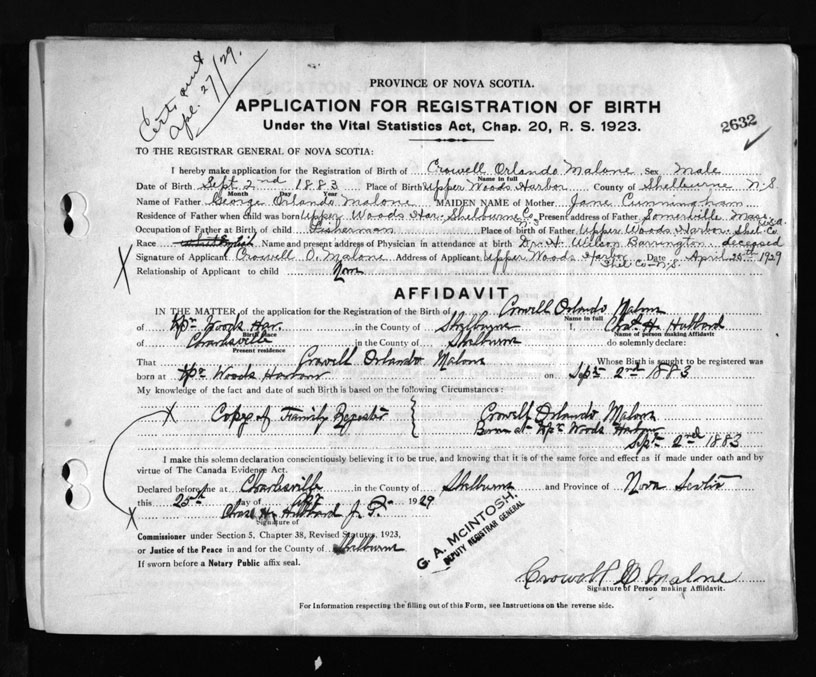 Certs sent
Apl. 27/29.
PROVINCE OF NOVA SCOTIA.
APPLICATION FOR REGISTRATION OF BIRTH
Under the Vital Statistics Act, Chap. 20, R. S. 1923.
2632
TO THE REGISTRAR GENERAL OF NOVA SCOTIA:
I hereby make application for the Registration of Birth of Crowell Orlando Malone Sex Male
Name in full
Date of Birth Sept 2nd 1883 Place of Birth Upper Woods Harbor County of Shelburne N.S
Month Day Year
Name of Father George Orlando Malone MAIDEN NAME of Mother Jane Cunningham
Residence of Father when child was born Upper Woods Har. Shelburne Co N.S Present address of Father Somerville Mass U.S.A.
Occupation of Father at Birth of child Fisherman Place of birth of Father Upper Woods Harbor. Shel. Co
Race Name and present address of Physician in attendance at birth Dr. H. Wilson Barrington. deceased
Signature of Applicant Crowell O. Malone Address of Applicant Upper Woods Harbor Shel. Co N.S. Date April 25th 1929
Relationship of Applicant to child
AFFIDAVIT
IN THE MATTER of the application for the Registration of the Birth of Crowell Orlando Malone
Name in full
of Upr. Woods Har. in the County of Shelburne I Chas. H. Hubbard
Birth place Name of person making Affidavit
of Charlesville in the County of Shelburne do solemnly declare:
Present residence
That Crowell Orlando Malone Whose Birth is sought to be registered was
born at Upr Woods Harbour on Sept 2nd 1883
My knowledge of the fact and date of such Birth is based on the following Circumstances:
X Copy of Family Register { Crowell Orlando Malone
Born at Upr Woods Harbour
Sept 2nd 1883
I make this solemn declaration conscientiously believing it to be true, and knowing that it is of the same force and effect as if made under oath and by
virtue of The Canada Evidence Act.
Declared before me at Charlesville in the County of Shelburne and Province of Nova Scotia
this 25th day of Apr 1929
X Chas. H. Hubbard J. P.
Signature of
Commissioner under Section 5, Chapter 38, Revised Statutes, 1923,
or Justice of the Peace in and for the County of Shelburne
If sworn before a Notary Public affix seal.
G. A. McINTOSH,
DEPUTY REGISTRAR GENERAL
Crowell O. Malone
Signature of Person making Affidavit.
For Information respecting the filling out of this Form, see Instructions on the reverse side.